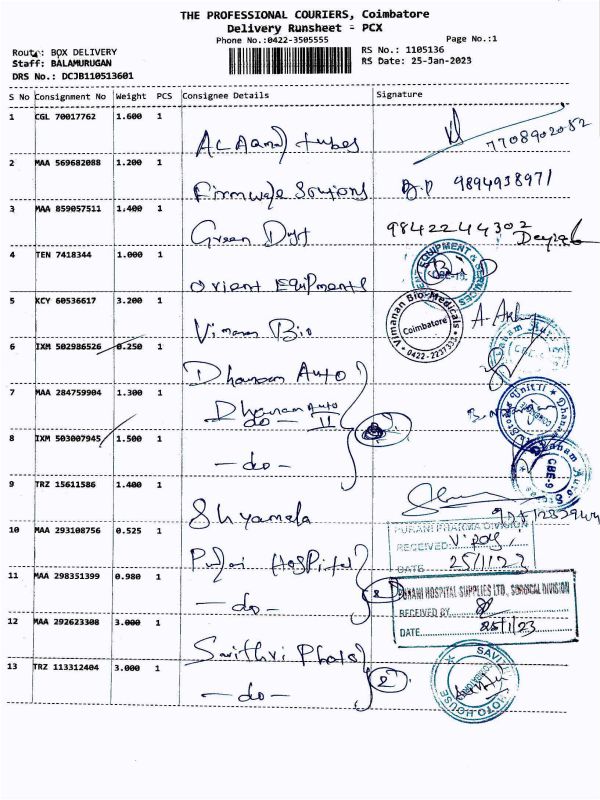 THE PROFESSIONAL COURIERS, Coimbatore
Delivery Runsheet - PCX
Phone No.:0422-3505555
Page No.:1
Route: BOX DELIVERY
Staff: BALAMURUGAN
DRS No.: DCJB110513601
RS No.: 1105136
RS Date: 25-Jan-2023
S No Consignment No Weight PCS Consignee Details Signature
1 CGL 70017762 1.600 1
tubes
7708902052
2 MAA 569682088 1.200 1
9894938971
3 MAA 859057511 1.400 1
Green
9842244302
4 TEN 7418344 1.000 1
Orient Equipments
EQUIPMENT & SERVICES
5 KCY 60536617 3.200 1
Viman Bio
Vimanan Bio-Medicals
Coimbatore
0422-2237333
6 IXM 502986526 0.250 1
Dhanam Auto
7 MAA 284759904 1.300 1
Dhanam Auto
-do- II
8 IXM 503007945 1.500 1
-do-
Dhanam Auto
CBE-9
9 TRZ 15611586 1.400 1
Shyamala
10 MAA 293108756 0.525 1
Hospital
PURANI PHARMA DIVISION
RECEIVED
DATE 25/1/23
11 MAA 298351399 0.980 1
-do-
PURANI HOSPITAL SUPPLIES LTD., SURGICAL DIVISION
RECEIVED BY
DATE 25/1/23
12 MAA 292623308 3.000 1
Savithri Photo
13 TRZ 113312404 3.000 1
-do-
2